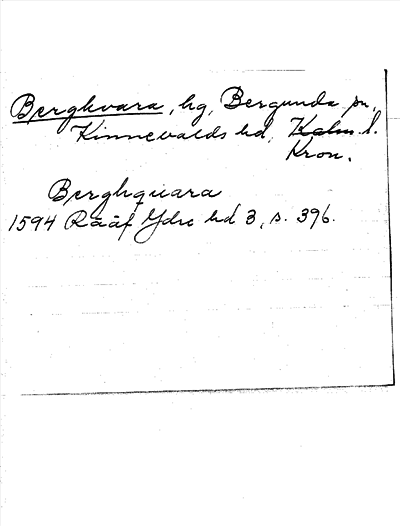 Bergkvara, hg, Bergunda sn,
Kinnevalds hd, Kalm. l.
Kron.
Berghquara
1594 Rääf Ydre hd 3, s. 396.